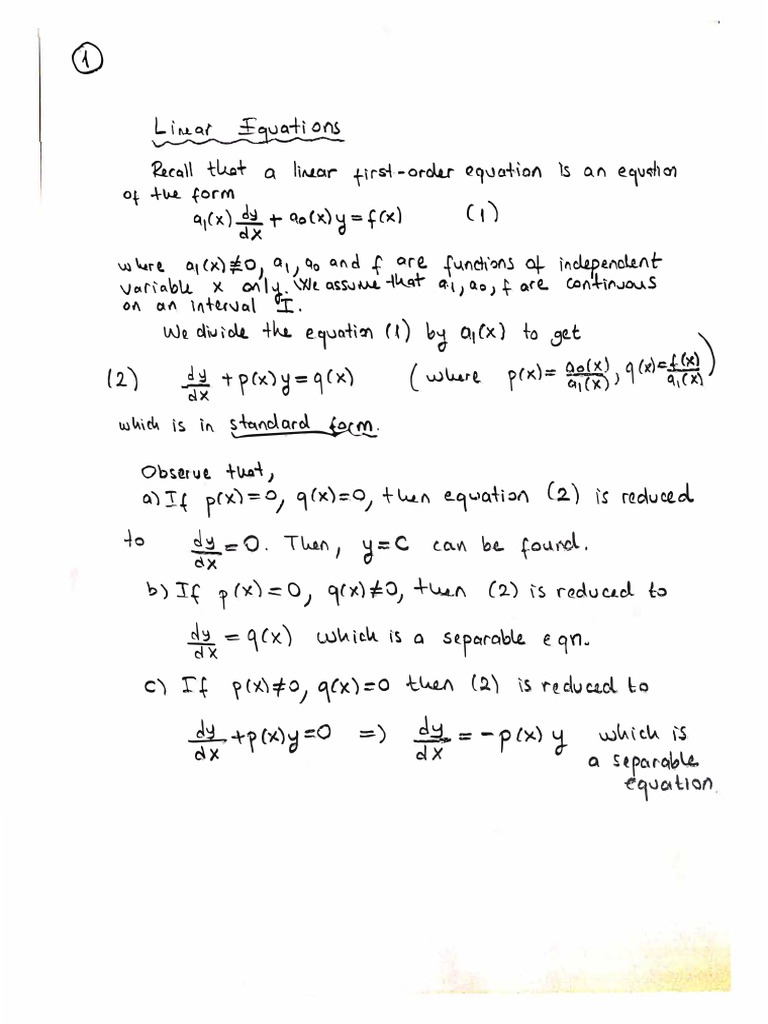 1
Linear Equations
Recall that a linear first-order equation is an equation
of the form
a₁(x) dy/dx + a₀(x)y = f(x)   (1)
where a₁(x)≢0, a₁, a₀ and f are functions of independent
variable x only. We assume that a₁, a₀, f are continuous
on an interval I.
We divide the equation (1) by a₁(x) to get
(2)   dy/dx + p(x)y = q(x)   (where p(x) = a₀(x)/a₁(x), q(x) = f(x)/a₁(x))
which is in standard form.
Observe that,
a) If p(x)=0, q(x)=0, then equation (2) is reduced
to dy/dx = 0. Then, y=C can be found.
b) If p(x)=0, q(x)≠0, then (2) is reduced to
dy/dx = q(x) which is a separable eqn.
c) If p(x)≠0, q(x)=0 then (2) is reduced to
dy/dx + p(x)y=0 => dy/dx = -p(x) y which is
a separable
equation.